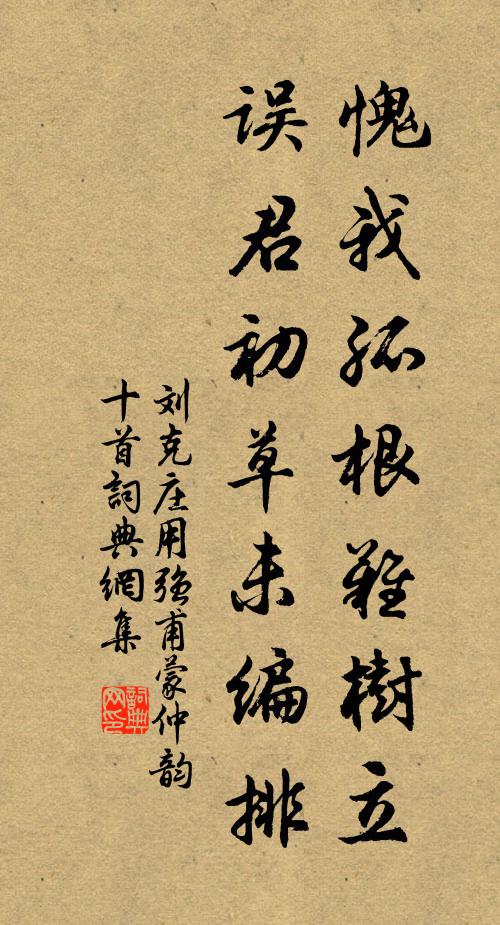 愧我孤根难樹立
误君初草未编排
刘克庄用强甫蒙仲韵
十首詞典網集
詞典网印